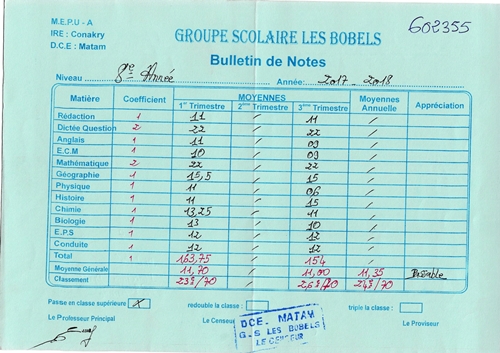 M.E.P.U - A
IRE : Conakry
D.C.E : Matam
602355
GROUPE SCOLAIRE LES BOBELS
Bulletin de Notes
Niveau 8e Année Année: 2017 - 2018
Matière Coefficient MOYENNES Moyennes Annuelle Appréciation
1er Trimestre 2ème Trimestre 3ème Trimestre
Rédaction 1 11 / 11 /
Dictée Question 2 22 / 22 /
Anglais 1 11 / 09 /
E.C.M 1 10 / 09 /
Mathématique 2 22 / 22 /
Géographie 1 15,5 / 15 /
Physique 1 11 / 06 /
Histoire 1 11 / 15 /
Chimie 1 13,25 / 11 /
Biologie 1 13 / 10 /
E.P.S 1 12 / 12 /
Conduite 1 12 / 12 /
Total 163,75 / 154 /
Moyenne Générale 11,70 / 11,00 11,35 Passable
Classement 23e/70 / 26e/70 24e/70
Passe en classe supérieure X redouble la classe : triple la classe :
Le Professeur Principal Le Censeur Le Proviseur
DCE. MATAM
G.S LES BOBELS
LE CENSEUR